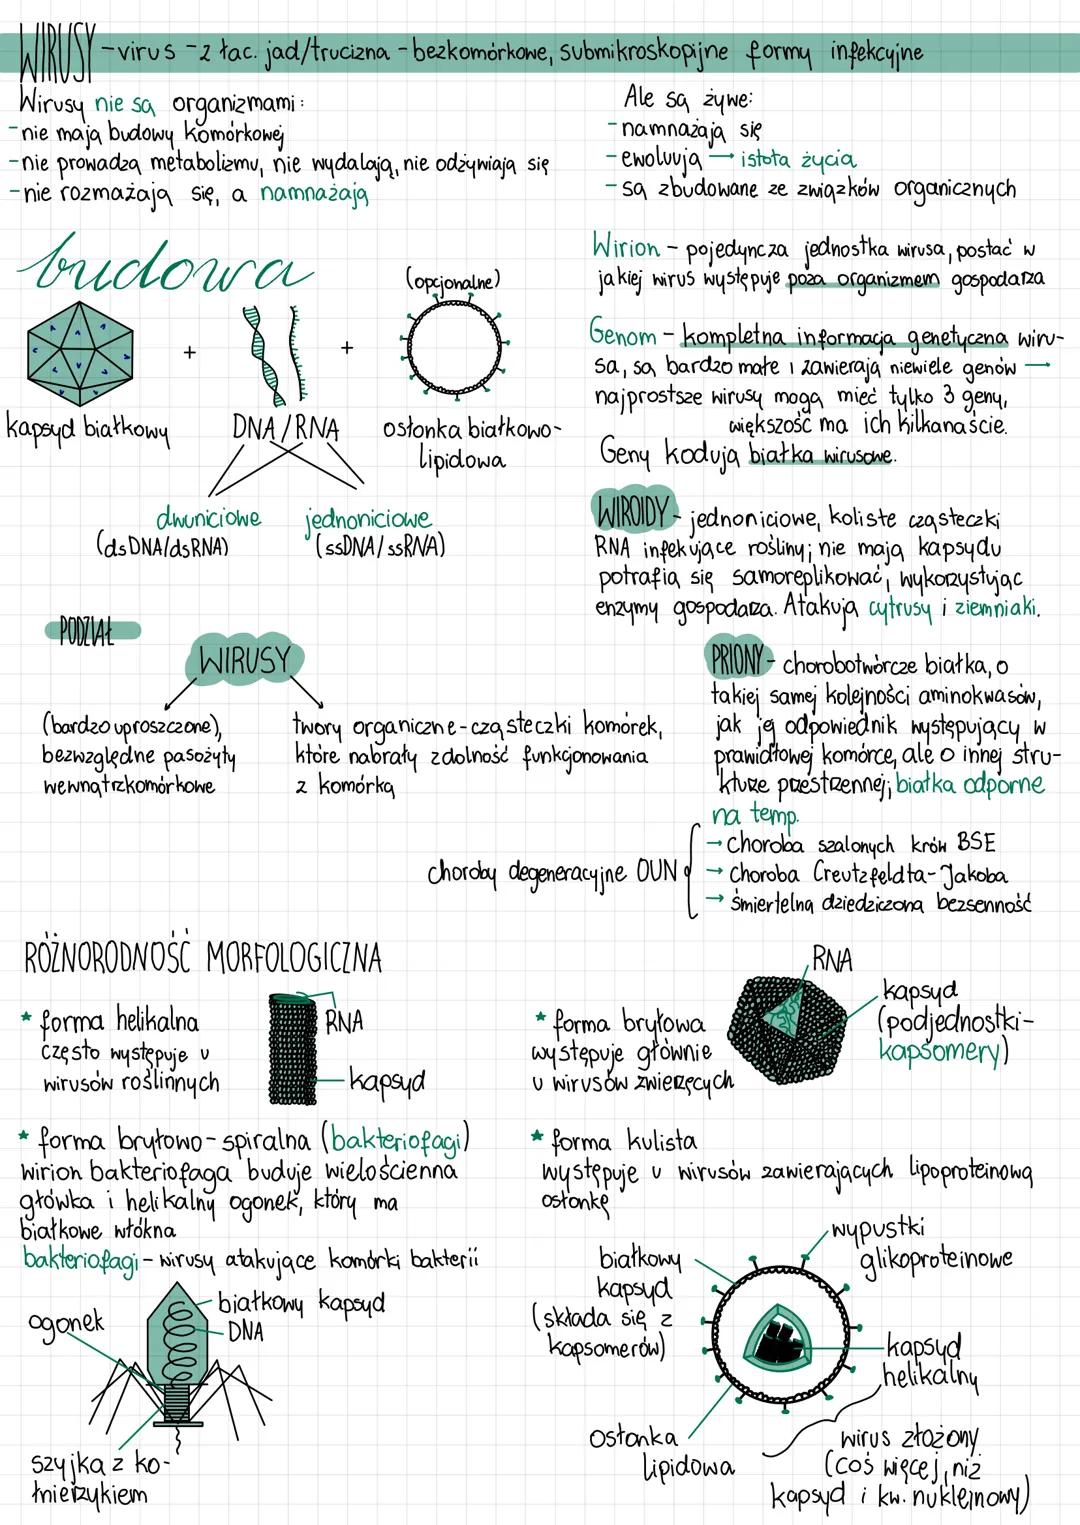 WIRUSY - virus - z łac. jad/trucizna - bezkomórkowe, submikroskopijne formy infekcyjne
Wirusy nie są organizmami:
- nie mają budowy komórkowej
- nie prowadzą metabolizmu, nie wydalają, nie odżywiają się
- nie rozmażają się, a namnażają
Ale są żywe:
- namnażają się
- ewoluują → istota życia
- są zbudowane ze związków organicznych
budowa
(opcjonalne)
+
+
kapsyd białkowy
DNA/RNA
osłonka białkowo-
lipidowa
dwuniciowe
(dsDNA/dsRNA)
jednoniciowe
(ssDNA/ssRNA)
Wirion - pojedyncza jednostka wirusa, postać w
jakiej wirus występuje poza organizmem gospodarza
Genom - kompletna informacja genetyczna wiru-
sa, są bardzo małe i zawierają niewiele genów →
najprostsze wirusy mogą mieć tylko 3 geny,
większość ma ich kilkanaście.
Geny kodują białka wirusowe.
WIROIDY - jednoniciowe, koliste cząsteczki
RNA infekujące rośliny; nie mają kapsydu
potrafią się samoreplikować, wykorzystując
enzymy gospodarza. Atakują cytrusy i ziemniaki.
PODZIAŁ
WIRUSY
(bardzo uproszczone),
bezwzględne pasożyty
wewnątrzkomórkowe
twory organiczne - cząsteczki komórek,
które nabrały zdolność funkcjonowania
z komórką
PRIONY - chorobotwórcze białka, o
takiej samej kolejności aminokwasów,
jak jej odpowiednik występujący w
prawidłowej komórce, ale o innej stru-
kturze przestrzennej; białka odporne
na temp.
choroby degeneracyjne OUN
→ choroba szalonych krów BSE
→ choroba Creutzfeldta-Jakoba
→ śmiertelną dziedziczoną bezsenność
RÓŻNORODNOŚĆ MORFOLOGICZNA
★ forma helikalna
często występuje u
wirusów roślinnych
RNA
kapsyd
★ forma bryłowa
występuje głównie
u wirusów zwierzęcych
RNA
kapsyd
(podjednostki-
kapsomery)
★ forma bryłowo-spiralna (bakteriofagi)
wirion bakteriofaga buduje wielościenna
główka i helikalny ogonek, który ma
białkowe włókna
bakteriofagi - wirusy atakujące komórki bakterii
ogonek
białkowy kapsyd
DNA
szyjka z ko-
łnierzykiem
★ forma kulista
występuje u wirusów zawierających lipoproteinową
osłonkę
białkowy
kapsyd
(składa się z
kapsomerów)
wypustki
glikoproteinowe
kapsyd
helikalny
osłonka
lipidowa
wirus złożony
(coś więcej, niż
kapsyd i kw. nukleinowy)